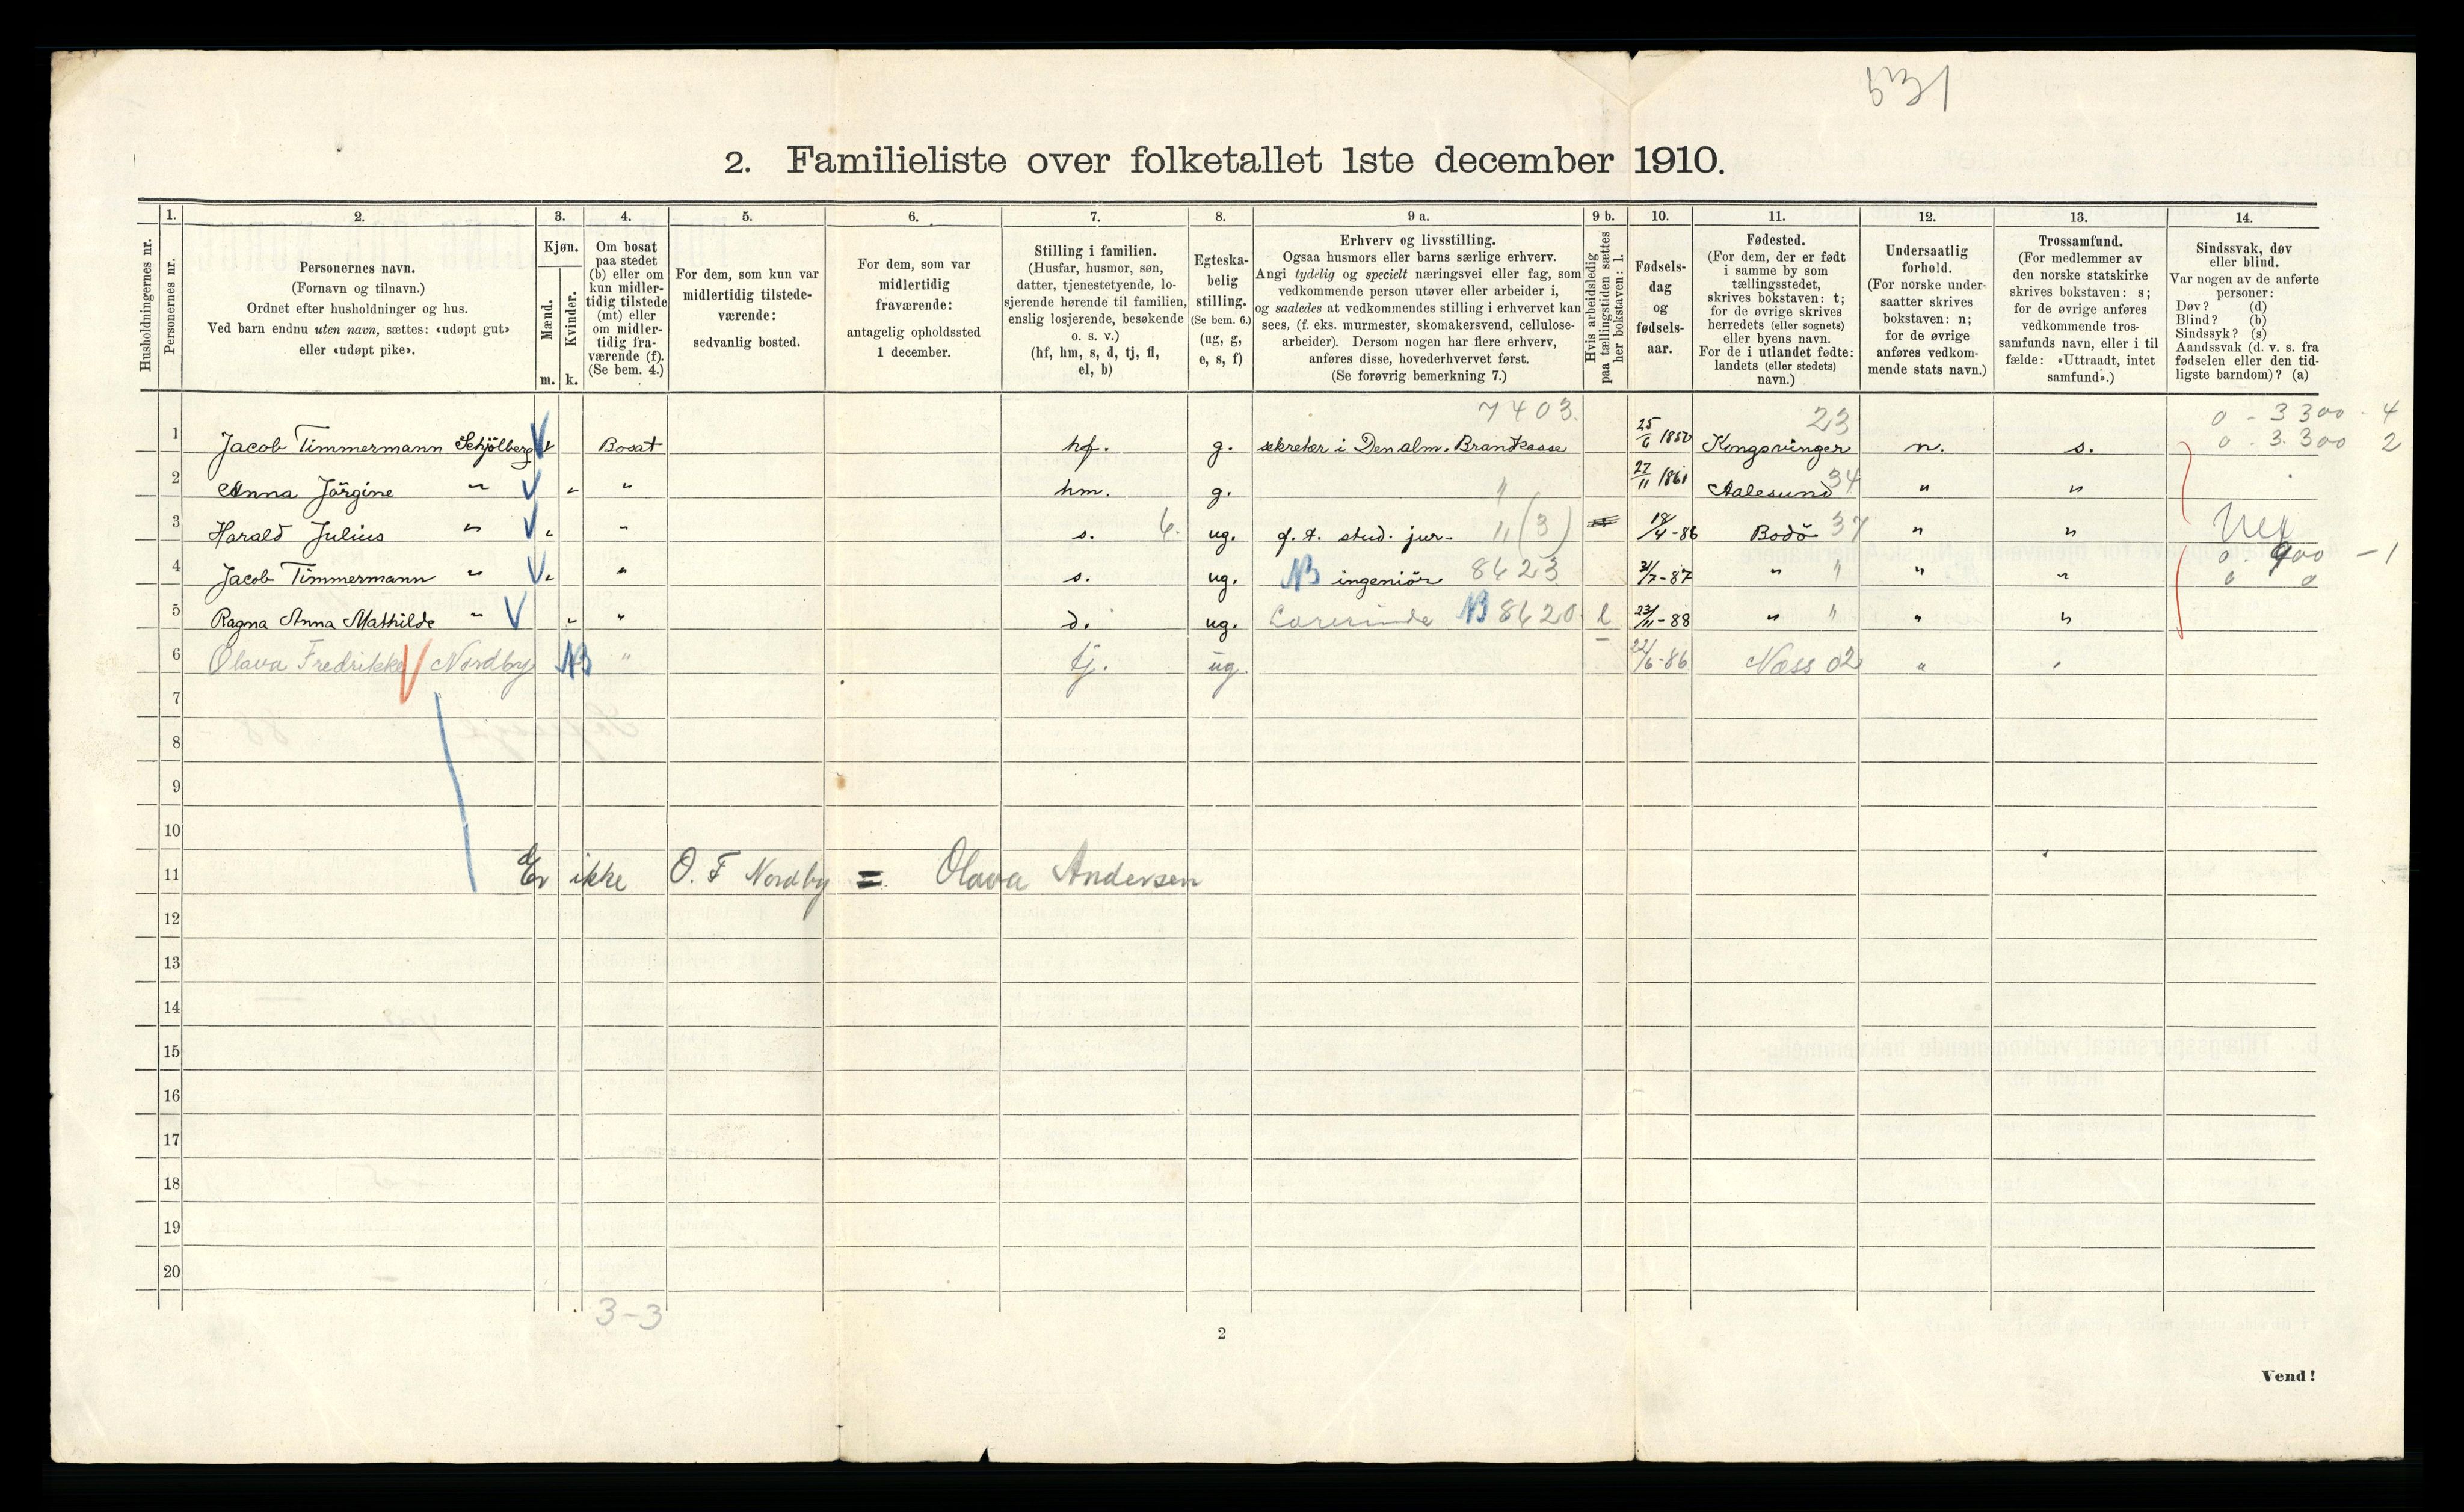 531
2. Familieliste over folketallet 1ste december 1910.
Husholdningernes nr.
1.
Personernes nr.
2.
Personernes navn.
(Fornavn og tilnavn.)
Ordnet efter husholdninger og hus.
Ved barn endnu uten navn, sættes: «udøpt gut»
eller «udøpt pike».
3.
Kjøn.
Mænd.
m.
Kvinder.
k.
4.
Om bosat
paa stedet
(b) eller om
kun midler-
tidig tilstede
(mt) eller
om midler-
tidig fra-
værende (f).
(Se bem. 4.)
5.
For dem, som kun var
midlertidig tilstede-
værende:
sedvanlig bosted.
6.
For dem, som var
midlertidig
fraværende:
antagelig opholdssted
1 december.
7.
Stilling i familien.
(Husfar, husmor, søn,
datter, tjenestetyende, lo-
sjerende hørende til familien,
enslig losjerende, besøkende
o. s. v.)
(hf, hm, s, d, tj, fl,
el, b)
8.
Egteska-
belig
stilling.
(Se bem. 6.)
(ug, g,
e, s, f)
9 a.
Erhverv og livsstilling.
Ogsaa husmors eller barns særlige erhverv.
Angi tydelig og specielt næringsvei eller fag, som
vedkommende person utøver eller arbeider i,
og saaledes at vedkommendes stilling i erhvervet kan
sees, (f. eks. murmester, skomakersvend, cellulose-
arbeider). Dersom nogen har flere erhverv,
anføres disse, hovederhvervet først.
(Se forøvrig bemerkning 7.)
9 b.
Hvis arbeidsledig
paa tællingstiden sættes
her bokstaven: l.
10.
Fødsels-
dag
og
fødsels-
aar.
11.
Fødested.
(For dem, der er født
i samme by som
tællingsstedet,
skrives bokstaven: t;
for de øvrige skrives
herredets (eller sognets)
eller byens navn.
For de i utlandet fødte:
landets (eller stedets)
navn.)
12.
Undersaatlig
forhold.
(For norske under-
saatter skrives
bokstaven: n;
for de øvrige
anføres vedkom-
mende stats navn.)
13.
Trossamfund.
(For medlemmer av
den norske statskirke
skrives bokstaven: s;
for de øvrige anføres
vedkommende tros-
samfunds navn, eller i til
fælde: «Uttraadt, intet
samfund».)
14.
Sindssvak, døv
eller blind.
Var nogen av de anførte
personer:
Døv? (d)
Blind? (b)
Sindssyk? (s)
Aandssvak (d. v. s. fra
fødselen eller den tid-
ligste barndom)? (a)
7403. 23 0 - 3300 - 4
1 Jacob Timmermann Schjölberg Bosat hf. g. sekretær i Den alm. Brankasse 25/6 1850 Kongsvinger n. s. 0 - 3.300 2
2 Anna Jörgine " " " hm. g. " 27/11 1861 Aalesund 34 " "
3 Harald Julius " " " s. 6. ug. f. t. stud. jur. " (3) 18/4-86 Bodö 37 " "
4 Jacob Timmermann " " " s. ug. NB ingeniör 8423 31/7-87 " " " " 0 900 - 1
0 0
5 Ragna Anna Mathilde " " " d. ug. Lærerinde NB 8620 l 23/11-88 " " " "
6 Olava Fredrikke Nordby NB " tj. ug. 22/6-86 Næss 02 " "
7
8
9
10
11 Er ikke O. F Nordby = Olava Andersen
12
13
14
15
16
17
18
19
20
3-3
2
Vend!